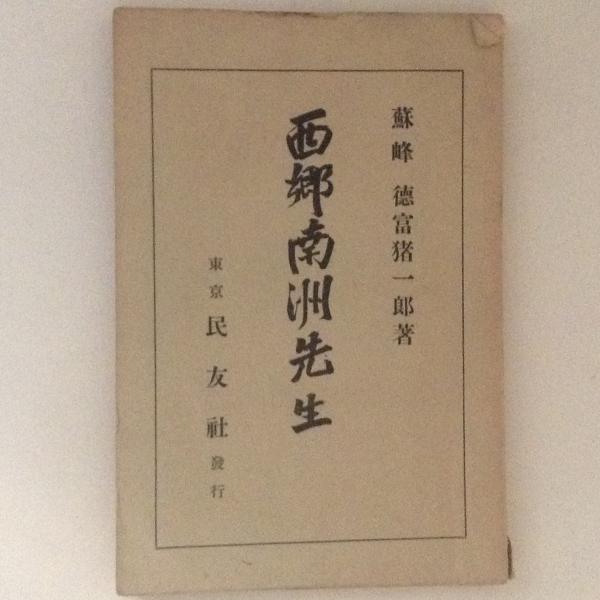 蘇峰 德富猪一郎著
西郷南洲先生
東京 民友社 發行